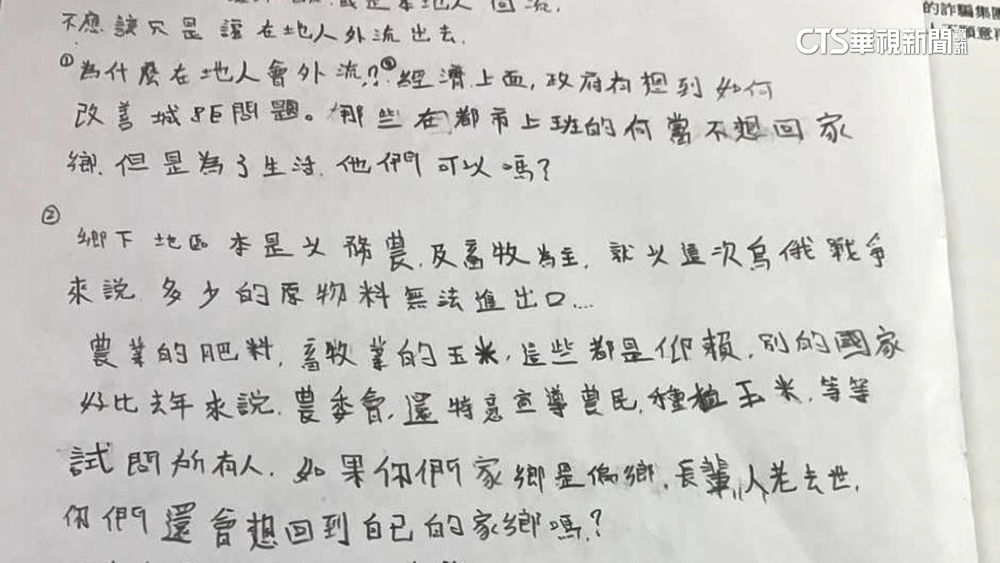 本地人回流.
不應該只是讓在地人外流出去.
① 為什麼在地人會外流?? 經濟上面,政府有想到如何
改善城鄉問題。那些在都市上班的何嘗不想回家
鄉.但是為了生活.他們可以嗎?
② 鄉下地區本是以務農.及畜牧為主.就以這次烏俄戰爭
來說.多少的原物料無法進出口....
農業的肥料.畜牧業的玉米.這些都是仰賴.別的國家
好比去年來說.農委會.還特意宣導農民.種植玉米.等等
試問所有人.如果你們家鄉是偏鄉.長輩人老去世.
你們還會想回到自己的家鄉嗎?
的詐騙集團
人不願意再
CTS華視新聞資訊